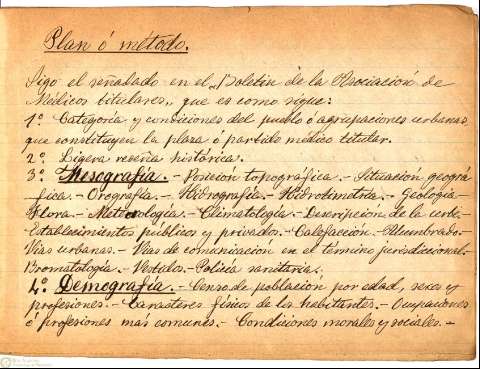 Plan ó método.
Sigo el señalado en el "Boletín de la Asociación de
Médicos titulares", que es como sigue:
1º Categoría y condiciones del pueblo ó agrupaciones urbanas
que constituyen la plaza ó partido médico titular.
2º Ligera reseña histórica.
3º Mesografía.- Posición topográfica.- Situación geográ-
fica.- Orografía.- Hidrografía.- Hidrotimetría.- Geología
Flora.- Meteorología.- Climatología.- Descripcion de la urbe.-
Establecimientos públicos y privados.- Calefacción.- Alumbrado.-
Vías urbanas.- Vías de comunicación en el término jurisdiccional.-
Bromatología.- Vestidos.- Policía sanitaria.
4º Demografía.- Censo de población por edad, sexos y
profesiones.- Caracteres físicos de los habitantes.- Ocupaciones
ó profesiones más comunes.- Condiciones morales y sociales.-